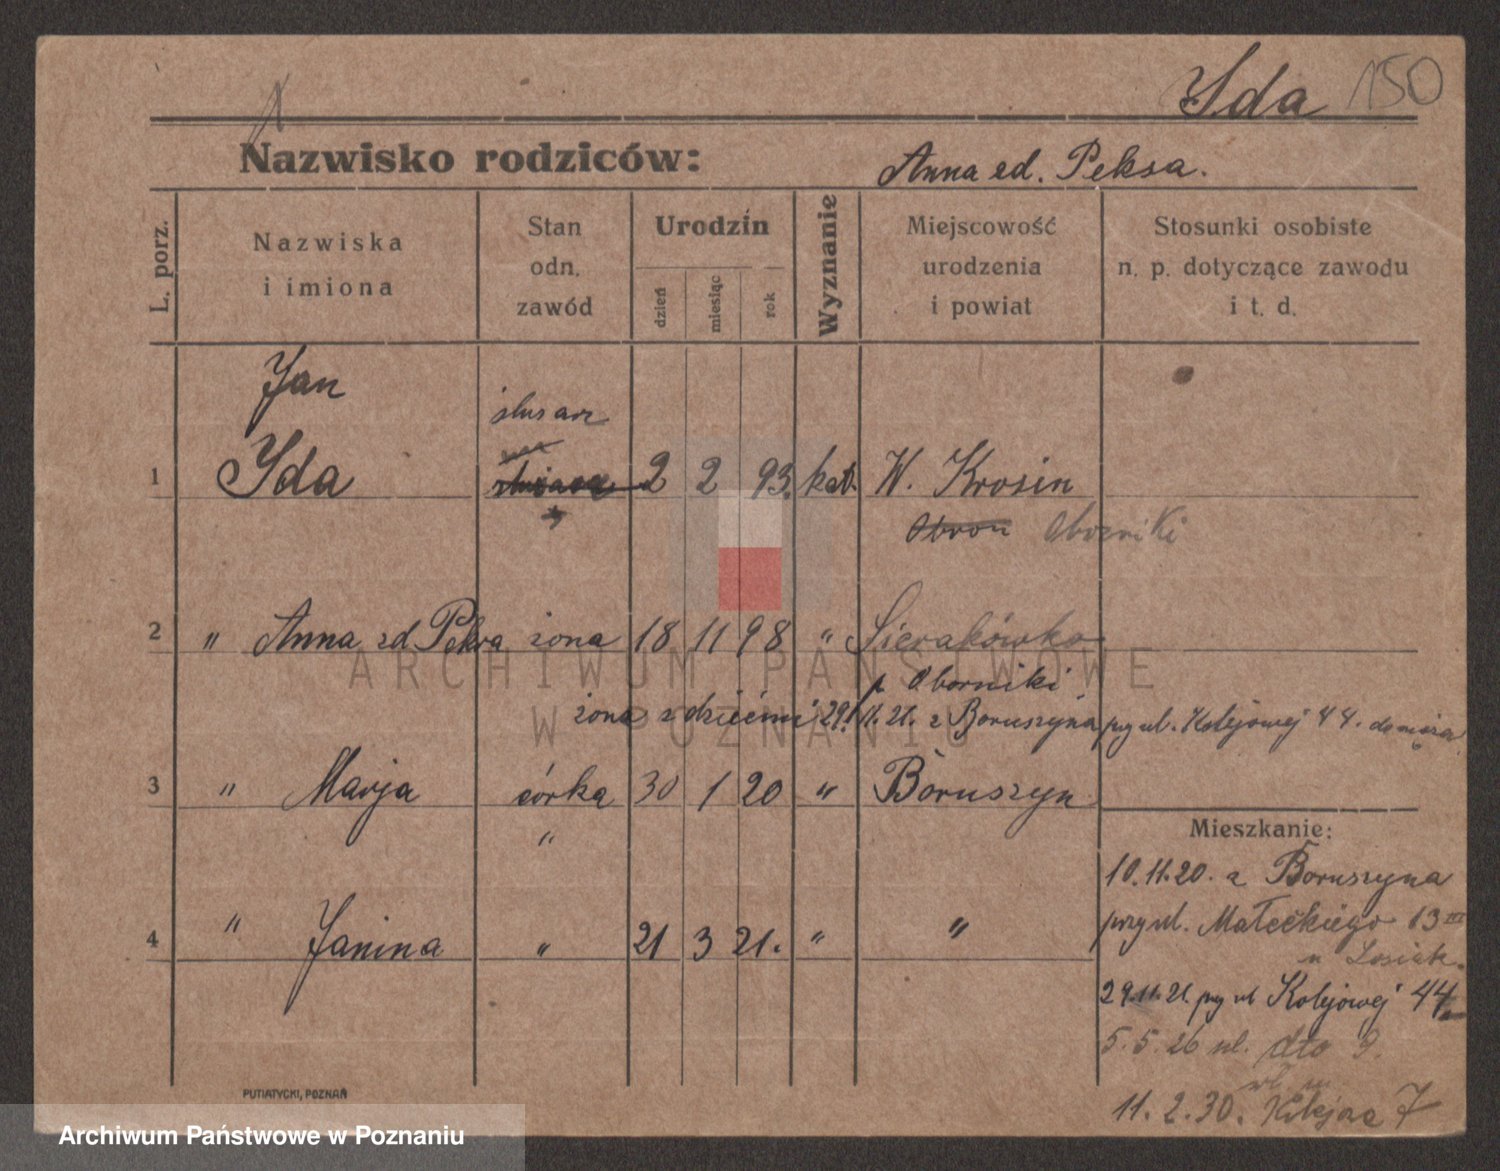 Ida 150
Nazwisko rodziców: Anna zd. Peksa.
L. porz.
Nazwiska
i imiona
Stan
odn.
zawód
Urodzin
dzień
miesiąc
rok
Wyznanie
Miejscowość
urodzenia
i powiat
Stosunki osobiste
n. p. dotyczące zawodu
i t. d.
Jan
ślusarz
1 Ida 2 2 93. kat. W. Krosin
Obroń Oborniki
2 " Anna zd. Peksa żona 18 11 98 " Sierakówko
p Oborniki
żona z dziećmi 29.11.21. z Boruszyna przy ul. Kolejowej 44. do męża
3 " Marja córka 30 1 20 " Boruszyn
"
4 " Janina " 21 3 21. " "
Mieszkanie:
10.11.20. z Boruszyna
przy ul. Małeckiego 13 III
u Losiak.
29.11.21. przy ul Kolejowej 44.
5.5.26 ul. dto 9.
11.2.30. Kolejowa 7
PUTIATYCKI, POZNAŃ
ARCHIWUM PAŃSTWOWE
W POZNANIU
Archiwum Państwowe w Poznaniu